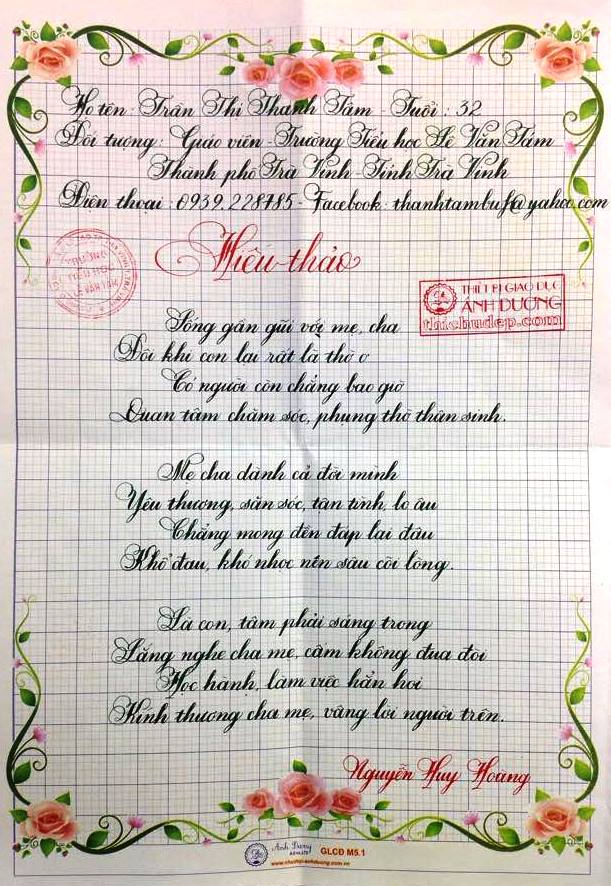 Họ tên: Trần Thị Thanh Tâm - Tuổi: 32
Đối tượng: Giáo viên - Trường Tiểu học Lê Văn Tám
Thành phố Trà Vinh - Tỉnh Trà Vinh
Điện thoại: 0939.228785 - Facebook: thanhtambuf@yahoo.com
Hiếu thảo
TRƯỜNG
TIỂU HỌC
LÊ VĂN TÁM
THIẾT BỊ GIÁO DỤC
ÁNH DƯƠNG
thichudep.com
Sống gần gũi với mẹ, cha
Đôi khi con lại rất là thờ ơ
Có người còn chẳng bao giờ
Quan tâm chăm sóc, phụng thờ thân sinh.
Mẹ cha dành cả đời mình
Yêu thương, săn sóc, tận tình, lo âu
Chẳng mong đền đáp lại đâu
Khổ đau, khó nhọc nén sâu cõi lòng.
Là con, tâm phải sáng trong
Lắng nghe cha mẹ, cấm không đua đòi
Học hành, làm việc hẳn hoi
Kính thương cha mẹ, vâng lời người trên.
Nguyễn Huy Hoàng
Ánh Dương
GLCĐ M5.1